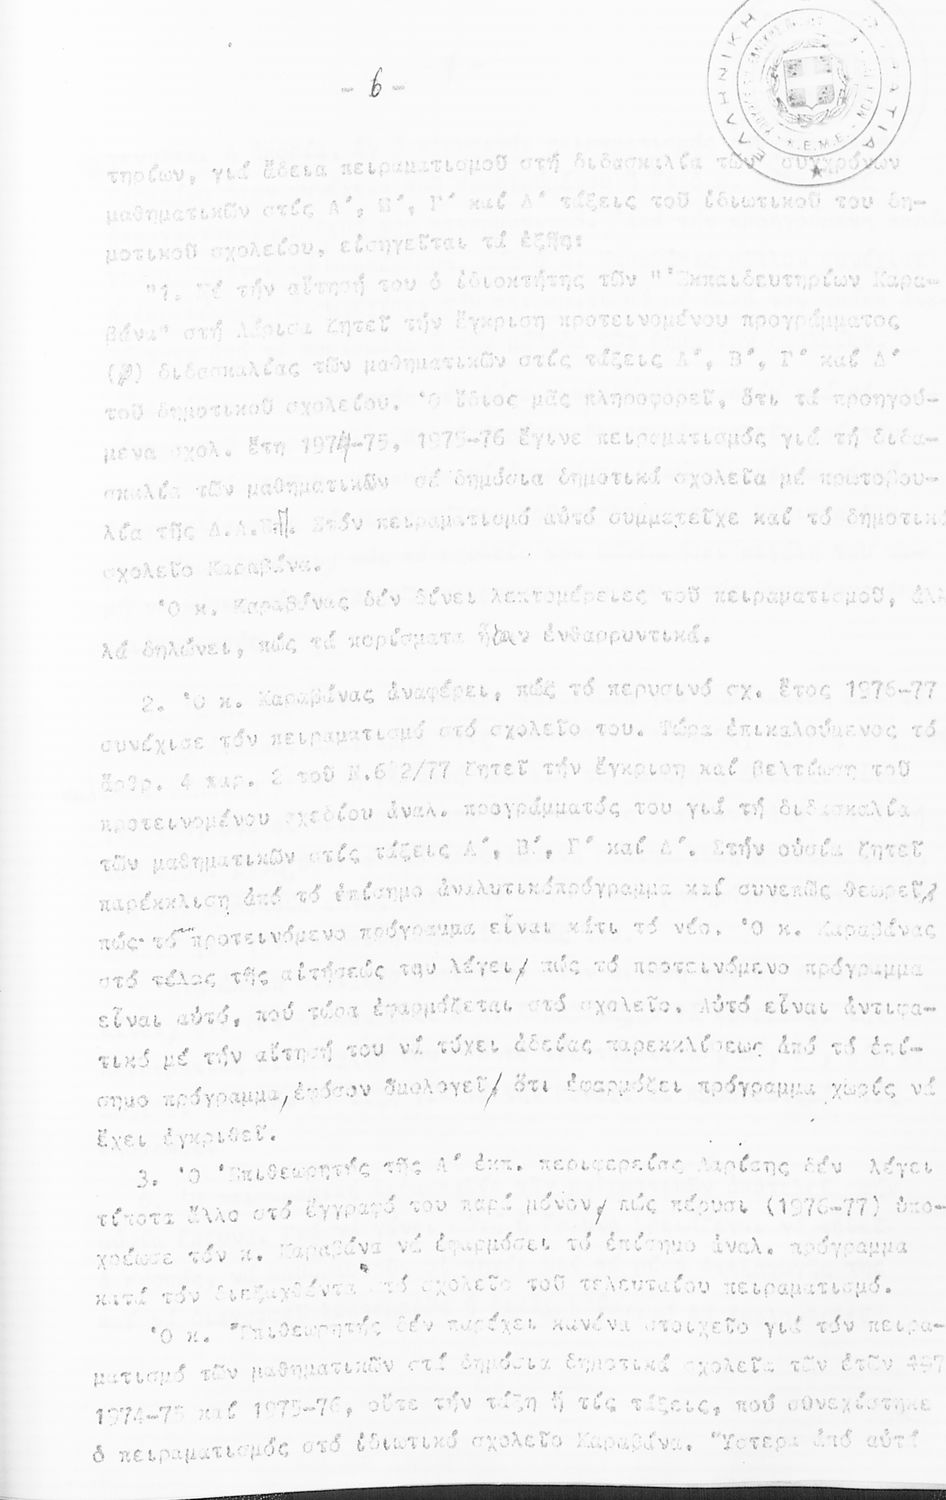 - 6 -
ΕΛΛΗΝΙΚΗ
Κ.Ε.Μ.Ε.
τηρίων, γιά ἄδεια πειραματισμοῦ στή διδασκαλία τῶν συγχρόνων
μαθηματικῶν στίς Α΄, Β΄, Γ΄ καί Δ΄ τάξεις τοῦ ἰδιωτικοῦ του δη-
μοτικοῦ σχολείου, εἰσηγεῖται τά ἑξῆς:
"1. Μέ τήν αἴτησή του ὁ ἰδιοκτήτης τῶν "Ἐκπαιδευτηρίων Καρα-
βάνα" στή Λάρισα ζητεῖ τήν ἔγκριση προτεινομένου προγράμματος
( ) διδασκαλίας τῶν μαθηματικῶν στίς τάξεις Α΄, Β΄, Γ΄ καί Δ΄
τοῦ δημοτικοῦ σχολείου. Ὁ ἴδιος μᾶς πληροφορεῖ, ὅτι τά προηγού-
μενα σχολ. ἔτη 1974-75, 1975-76 ἔγινε πειραματισμός γιά τή διδα-
σκαλία τῶν μαθηματικῶν σέ δημόσια δημοτικά σχολεῖα μέ πρωτοβου-
λία τῆς Στόν πειραματισμό αὐτό συμμετεῖχε καί τό δημοτικό
σχολεῖο Καραβάνα.
Ὁ κ. Καραβάνας δέν δίνει λεπτομέρειες τοῦ πειραματισμοῦ, ἀλ-
λά δηλώνει, πώς τά πορίσματα ἦσαν ἐνθαρρυντικά.
2. Ὁ κ. Καραβάνας ἀναφέρει, πώς τό περυσινό σχ. ἔτος 1976-77
συνέχισε τόν πειραματισμό στό σχολεῖο του. Τώρα ἐπικαλούμενος τό
ἄρθρ. 4 παρ. 2 τοῦ Ν.682/77 ζητεῖ τήν ἔγκριση καί βελτίωση τοῦ
προτεινομένου σχεδίου ἀναλ. προγράμματός του γιά τή διδασκαλία
τῶν μαθηματικῶν στίς τάξεις Α΄, Β΄, Γ΄ καί Δ΄. Στήν οὐσία ζητεῖ
παρέκκλιση ἀπό τό ἐπίσημο ἀναλυτικόπρόγραμμα καί συνεπῶς θεωρεῖ,
πώς τό προτεινόμενο πρόγραμμα εἶναι κάτι τό νέο. Ὁ κ. Καραβάνας
στό τέλος τῆς αἰτήσεώς του λέγει, πώς τό προτεινόμενο πρόγραμμα
εἶναι αὐτό, πού τώρα ἐφαρμόζεται στό σχολεῖο. Αὐτό εἶναι ἀντιφα-
τικό μέ τήν αἴτησή του νά τύχει ἀδείας παρεκκλίσεως ἀπό τό ἐπί-
σημο πρόγραμμα, ἐφόσον ὁμολογεῖ, ὅτι ἐφαρμόζει πρόγραμμα χωρίς νά
ἔχει ἐγκριθεῖ.
3. Ὁ Ἐπιθεωρητής τῆς Α΄ ἐκπ. περιφερείας Λαρίσης δέν λέγει
τίποτα ἄλλο στό ἔγγραφό του παρά μόνον, πώς πέρυσι (1976-77) ὑπο-
χρέωσε τόν κ. Καραβάνα νά ἐφαρμόσει τό ἐπίσημο ἀναλ. πρόγραμμα
κατά τόν διεξαχθέντα στό σχολεῖο τοῦ τελευταίου πειραματισμό.
Ὁ κ. Ἐπιθεωρητής δέν παρέχει κανένα στοιχεῖο γιά τόν πειρα-
ματισμό τῶν μαθηματικῶν στά δημόσια δημοτικά σχολεῖα τῶν ἐτῶν
1974-75 καί 1975-76, οὔτε τήν τάξη ἤ τίς τάξεις, πού σθνεχίστηκε
ὁ πειραματισμός στό ἰδιωτικό σχολεῖο Καραβάνα. Ὕστερα ἀπό αὐτά